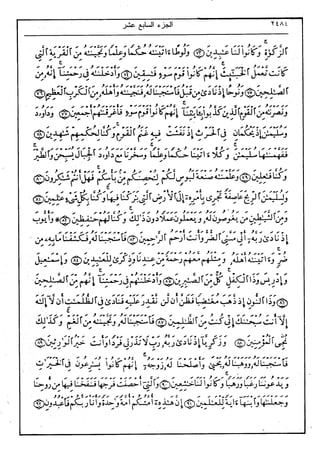 ٢٤٨٤
الجزء السابع عشر
ٱلزَّكَوٰةِ ۖ وَكَانُوا۟ لَنَا عَٰبِدِينَ ﴿٧٣﴾ وَلُوطًا ءَاتَيْنَٰهُ حُكْمًا وَعِلْمًا وَنَجَّيْنَٰهُ مِنَ ٱلْقَرْيَةِ ٱلَّتِى
كَانَت تَّعْمَلُ ٱلْخَبَٰٓئِثَ ۗ إِنَّهُمْ كَانُوا۟ قَوْمَ سَوْءٍ فَٰسِقِينَ ﴿٧٤﴾ وَأَدْخَلْنَٰهُ فِى رَحْمَتِنَآ ۖ إِنَّهُۥ مِنَ
ٱلصَّٰلِحِينَ ﴿٧٥﴾ وَنُوحًا إِذْ نَادَىٰ مِن قَبْلُ فَٱسْتَجَبْنَا لَهُۥ فَنَجَّيْنَٰهُ وَأَهْلَهُۥ مِنَ ٱلْكَرْبِ ٱلْعَظِيمِ ﴿٧٦﴾
وَنَصَرْنَٰهُ مِنَ ٱلْقَوْمِ ٱلَّذِينَ كَذَّبُوا۟ بِـَٔايَٰتِنَآ ۚ إِنَّهُمْ كَانُوا۟ قَوْمَ سَوْءٍ فَأَغْرَقْنَٰهُمْ أَجْمَعِينَ ﴿٧٧﴾ وَدَاوُۥدَ
وَسُلَيْمَٰنَ إِذْ يَحْكُمَانِ فِى ٱلْحَرْثِ إِذْ نَفَشَتْ فِيهِ غَنَمُ ٱلْقَوْمِ وَكُنَّا لِحُكْمِهِمْ شَٰهِدِينَ ﴿٧٨﴾
فَفَهَّمْنَٰهَا سُلَيْمَٰنَ ۚ وَكُلًّا ءَاتَيْنَا حُكْمًا وَعِلْمًا ۚ وَسَخَّرْنَا مَعَ دَاوُۥدَ ٱلْجِبَالَ يُسَبِّحْنَ وَٱلطَّيْرَ ۚ
وَكُنَّا فَٰعِلِينَ ﴿٧٩﴾ وَعَلَّمْنَٰهُ صَنْعَةَ لَبُوسٍ لَّكُمْ لِتُحْصِنَكُم مِّنۢ بَأْسِكُمْ ۖ فَهَلْ أَنتُمْ شَٰكِرُونَ ﴿٨٠﴾
وَلِسُلَيْمَٰنَ ٱلرِّيحَ عَاصِفَةً تَجْرِى بِأَمْرِهِۦٓ إِلَى ٱلْأَرْضِ ٱلَّتِى بَٰرَكْنَا فِيهَا ۚ وَكُنَّا بِكُلِّ شَىْءٍ عَٰلِمِينَ ﴿٨١﴾
وَمِنَ ٱلشَّيَٰطِينِ مَن يَغُوصُونَ لَهُۥ وَيَعْمَلُونَ عَمَلًا دُونَ ذَٰلِكَ ۖ وَكُنَّا لَهُمْ حَٰفِظِينَ ﴿٨٢﴾ وَأَيُّوبَ
إِذْ نَادَىٰ رَبَّهُۥٓ أَنِّى مَسَّنِىَ ٱلضُّرُّ وَأَنتَ أَرْحَمُ ٱلرَّٰحِمِينَ ﴿٨٣﴾ فَٱسْتَجَبْنَا لَهُۥ فَكَشَفْنَا مَا بِهِۦ مِن
ضُرٍّ ۖ وَءَاتَيْنَٰهُ أَهْلَهُۥ وَمِثْلَهُم مَّعَهُمْ رَحْمَةً مِّنْ عِندِنَا وَذِكْرَىٰ لِلْعَٰبِدِينَ ﴿٨٤﴾ وَإِسْمَٰعِيلَ
وَإِدْرِيسَ وَذَا ٱلْكِفْلِ ۖ كُلٌّ مِّنَ ٱلصَّٰبِرِينَ ﴿٨٥﴾ وَأَدْخَلْنَٰهُمْ فِى رَحْمَتِنَآ ۖ إِنَّهُم مِّنَ ٱلصَّٰلِحِينَ
﴿٨٦﴾ وَذَا ٱلنُّونِ إِذ ذَّهَبَ مُغَٰضِبًا فَظَنَّ أَن لَّن نَّقْدِرَ عَلَيْهِ فَنَادَىٰ فِى ٱلظُّلُمَٰتِ أَن لَّآ إِلَٰهَ
إِلَّآ أَنتَ سُبْحَٰنَكَ إِنِّى كُنتُ مِنَ ٱلظَّٰلِمِينَ ﴿٨٧﴾ فَٱسْتَجَبْنَا لَهُۥ وَنَجَّيْنَٰهُ مِنَ ٱلْغَمِّ ۚ وَكَذَٰلِكَ
نُۨجِى ٱلْمُؤْمِنِينَ ﴿٨٨﴾ وَزَكَرِيَّآ إِذْ نَادَىٰ رَبَّهُۥ رَبِّ لَا تَذَرْنِى فَرْدًا وَأَنتَ خَيْرُ ٱلْوَٰرِثِينَ ﴿٨٩﴾
فَٱسْتَجَبْنَا لَهُۥ وَوَهَبْنَا لَهُۥ يَحْيَىٰ وَأَصْلَحْنَا لَهُۥ زَوْجَهُۥٓ ۚ إِنَّهُمْ كَانُوا۟ يُسَٰرِعُونَ فِى ٱلْخَيْرَٰتِ
وَيَدْعُونَنَا رَغَبًا وَرَهَبًا ۖ وَكَانُوا۟ لَنَا خَٰشِعِينَ ﴿٩٠﴾ وَٱلَّتِىٓ أَحْصَنَتْ فَرْجَهَا فَنَفَخْنَا فِيهَا مِن رُّوحِنَا
وَجَعَلْنَٰهَا وَٱبْنَهَآ ءَايَةً لِّلْعَٰلَمِينَ ﴿٩١﴾ إِنَّ هَٰذِهِۦٓ أُمَّتُكُمْ أُمَّةً وَٰحِدَةً وَأَنَا۠ رَبُّكُمْ فَٱعْبُدُونِ ﴿٩٢﴾